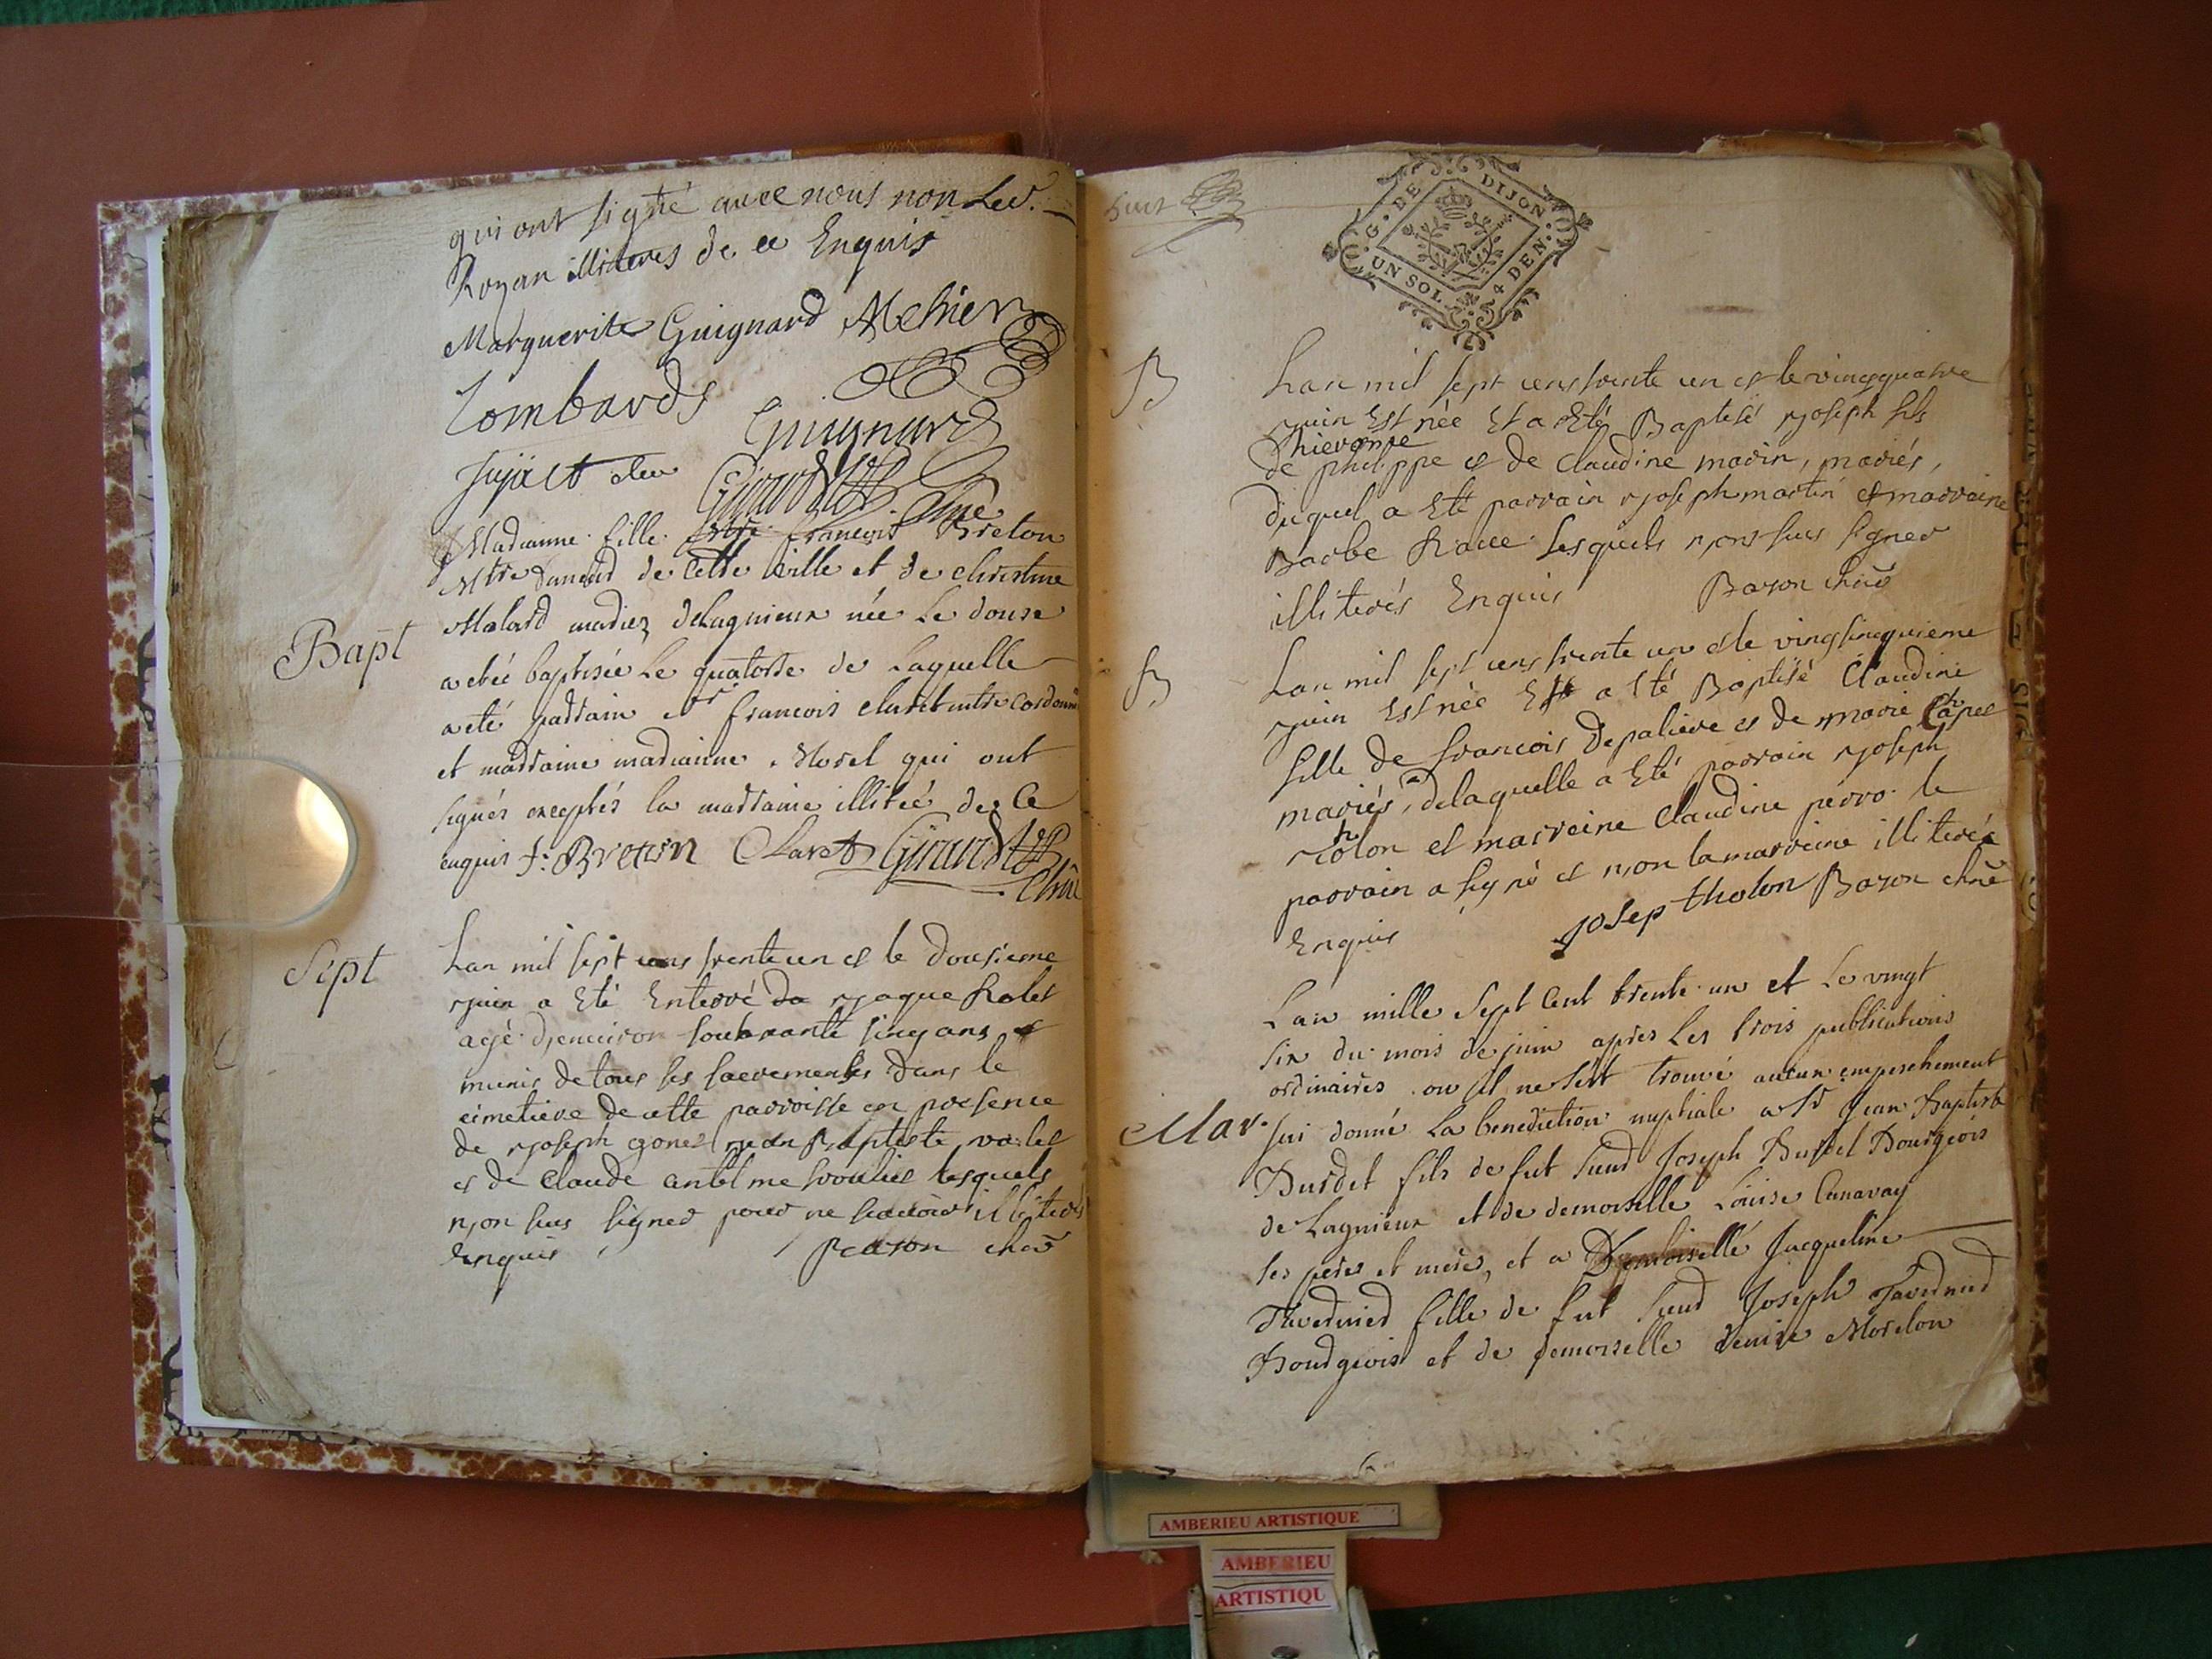 qui ont signé avec nous non Led.
Royan illiteres de ce Enquis
Marguerite Guignard Methier
Lombards
Guignard
Jujat
Giraud
Marianne fille François Breton
Mtre de cette ville et de christine
Malard mariez delagnieux née Le douse
Bapt
a eté baptisée Le quatorse de Laquelle
a eté parrain Sr françois claret mtre Cordonn
et marraine marianne Morel qui ont
signés exceptés la marraine illiteré de Ce
enquis f: Breton Claret Giraud
Chne
Sept
Lan mil sept cens trente un et le dousieme
juin a Eté Enterré jaque Rolet
agé denviron soixante sinq ans et
munis de tous ses sacremens dans le
cimetiere de cette parroisse en presence
de joseph gonet jean Baptiste
et de claude antelme lesquels
njon sus signer pour ne scavoir illiterés
enquis Bason chne
huit
G. DE DIJON
UN SOL 4 DEN.
B
Lan mil sept cens trente un et le vingquatre
juin Est née Et a Eté Baptisé joseph fils
de philippe et de claudine marin, mariés,
duquel a Eté parrain joseph martin et marraine
Barbe Lesquels njons sus signer
illiterés Enquis Bason chne
B
Lan mil sept cens trente un et le vingsinquieme
juin Est née Et a Eté Baptisé Claudine
fille de francois Depaliere et de marie
mariés, delaquelle a Eté parrain joseph
tholon et marreine Claudine perro le
parrain a signé et njon la marreine illiterée
Enquis josep tholon Bason chne
Lan mille Sept Cent trente un et Le vingt
six du mois de juin apres Les trois publications
ordinaires ou il ne sest trouvé aucun empeschement
Mar.
jai donné La benediction nuptiale a Sr Jean Baptiste
Burdet fils de fut Sieur Joseph Burdet Bourgeois
de Lagnieux et de demoiselle Louise Canavay
ses pere et mere, et a Demoiselle Jacqueline
Tavernier fille de fut Sieur Joseph Tavernier
Bourgeois et de demoiselle denise Morelon
AMBERIEU ARTISTIQUE
AMBERIEU
ARTISTIQU